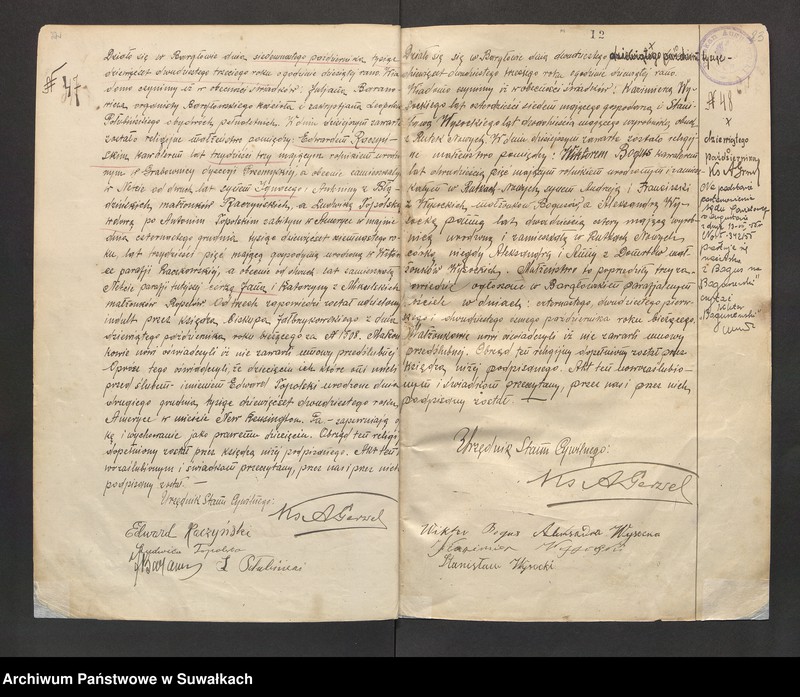 № 47
Działo się w Bargłowie dnia siedemnastego października tysiąc
dziewięćset dwudziestego trzeciego roku o godzinie dziesiątej rano. Wia
domo czynimy iż w obecności świadków: Juljana Barano-
wicza, organisty Bargłowskiego kościoła i
obydwóch pełnoletnich. W dniu dzisiejszym zawarte
zostało religijne małżeństwo pomiędzy: Edwardem Raczyń-
skim kawalerem lat trzydzieści trzy mającym rolnikiem urodzo-
nym w Grabownicy a obecnie zamieszkałym
w Necie od dwuch lat synem Ignacego i Antoniny z
małżonków Raczyńskich, a Ludwiką Topolską
wdową po Antonim Topolskim zabitym w Ameryce w
dnia czternastego grudnia tysiąc dziewięćset ro-
ku lat trzydzieści pięć mającą gospodynią urodzoną w
parafji Raczkowskiej, a obecnie od dwóch lat zamieszkałą
Necie parafji tutejszej córką Jana i Katarzyny z
małżonków Od trzech zapowiedzi został udzielony
indult przez księdza biskupa z dnia
dziewiątego października roku bieżącego za № 1898. Małżon
kowie nowi oświadczyli iż nie zawarli umowy przedślubnej
Oprócz tego oświadczyli, że dziecięciu ich które oni mieli
przed ślubem - imieniem Edward Topolski urodzone dnia
drugiego grudnia tysiąc dziewięćset dwudziestego roku
Ameryce w mieście New Kensington. Pa. - zapewniają o
kę i wychowanie jako prawemu dziecięciu. Obrząd ten religij
dopełniony został przez księdza niżej podpisanego. Akt ten
nowozaślubionym i świadkom przeczytany, przez nas i przez nich
podpisany został. —
Urzędnik Stanu Cywilnego:
Ks A Gerwel
Edward Raczyński
Ludwika Topolska
12
83
Działo się w Bargłowie dnia dwudziestego dziewiątego października tysiąc-
dziewięćset dwudziestego trzeciego roku o godzinie dwunastej rano.
Wiadomo czynimy iż w obecności świadków: Kazimierza Wy-
sockiego lat czterdzieści siedem mającego gospodarza i Stani-
sława Wysockiego lat dwadzieścia mającego wyrobnika obuch
z Rutek Nowych. W dniu dzisiejszym zawarte zostało religij-
ne małżeństwo pomiędzy: Wiktorem Bogus kawalerem
lat dwadzieścia pięć mającym rolnikiem urodzonym i zamiesz
kałym w Rutkach Nowych, synem Andrzeja i Franciszki
z Wysockich małżonków Bogusów a Aleksandrą Wy-
socką panną lat dwadzieścia cztery mającą wyrob-
nicą urodzoną i zamieszkałą w Rutkach Nowych
córką niegdy Aleksandra i Anny z mał-
żonków Wysockich. Małżeństwo to poprzedziły trzy za-
powiedzie ogłoszone w Bargłowskim parafjalnym
kościele w dniach: czternastego, dwudziestego pierw-
szego i dwudziestego ósmego października roku bieżącego.
Małżonkowie nowi oświadczyli iż nie zawarli umowy
przedślubnej. Obrząd ten religijny dopełniony został przez
księdza niżej podpisanego. Akt ten nowozaślubio-
nym i świadkom przeczytany, przez nas i przez nich
podpisany został. —
Urzędnik Stanu Cywilnego:
Ks A Gerwel
Wiktor Bogus Aleksandra Wysocka
Kazimierz Wysocki
Stanisław Wysocki
№ 48
x
dziewiątego
października
Na podstawie
postanowienia
Sądu
prostuje się
nazwisko
z "Bogus" na
"Boguszewski"
czytać
Wiktor
"Boguszewski"
Archiwum Państwowe w Suwałkach